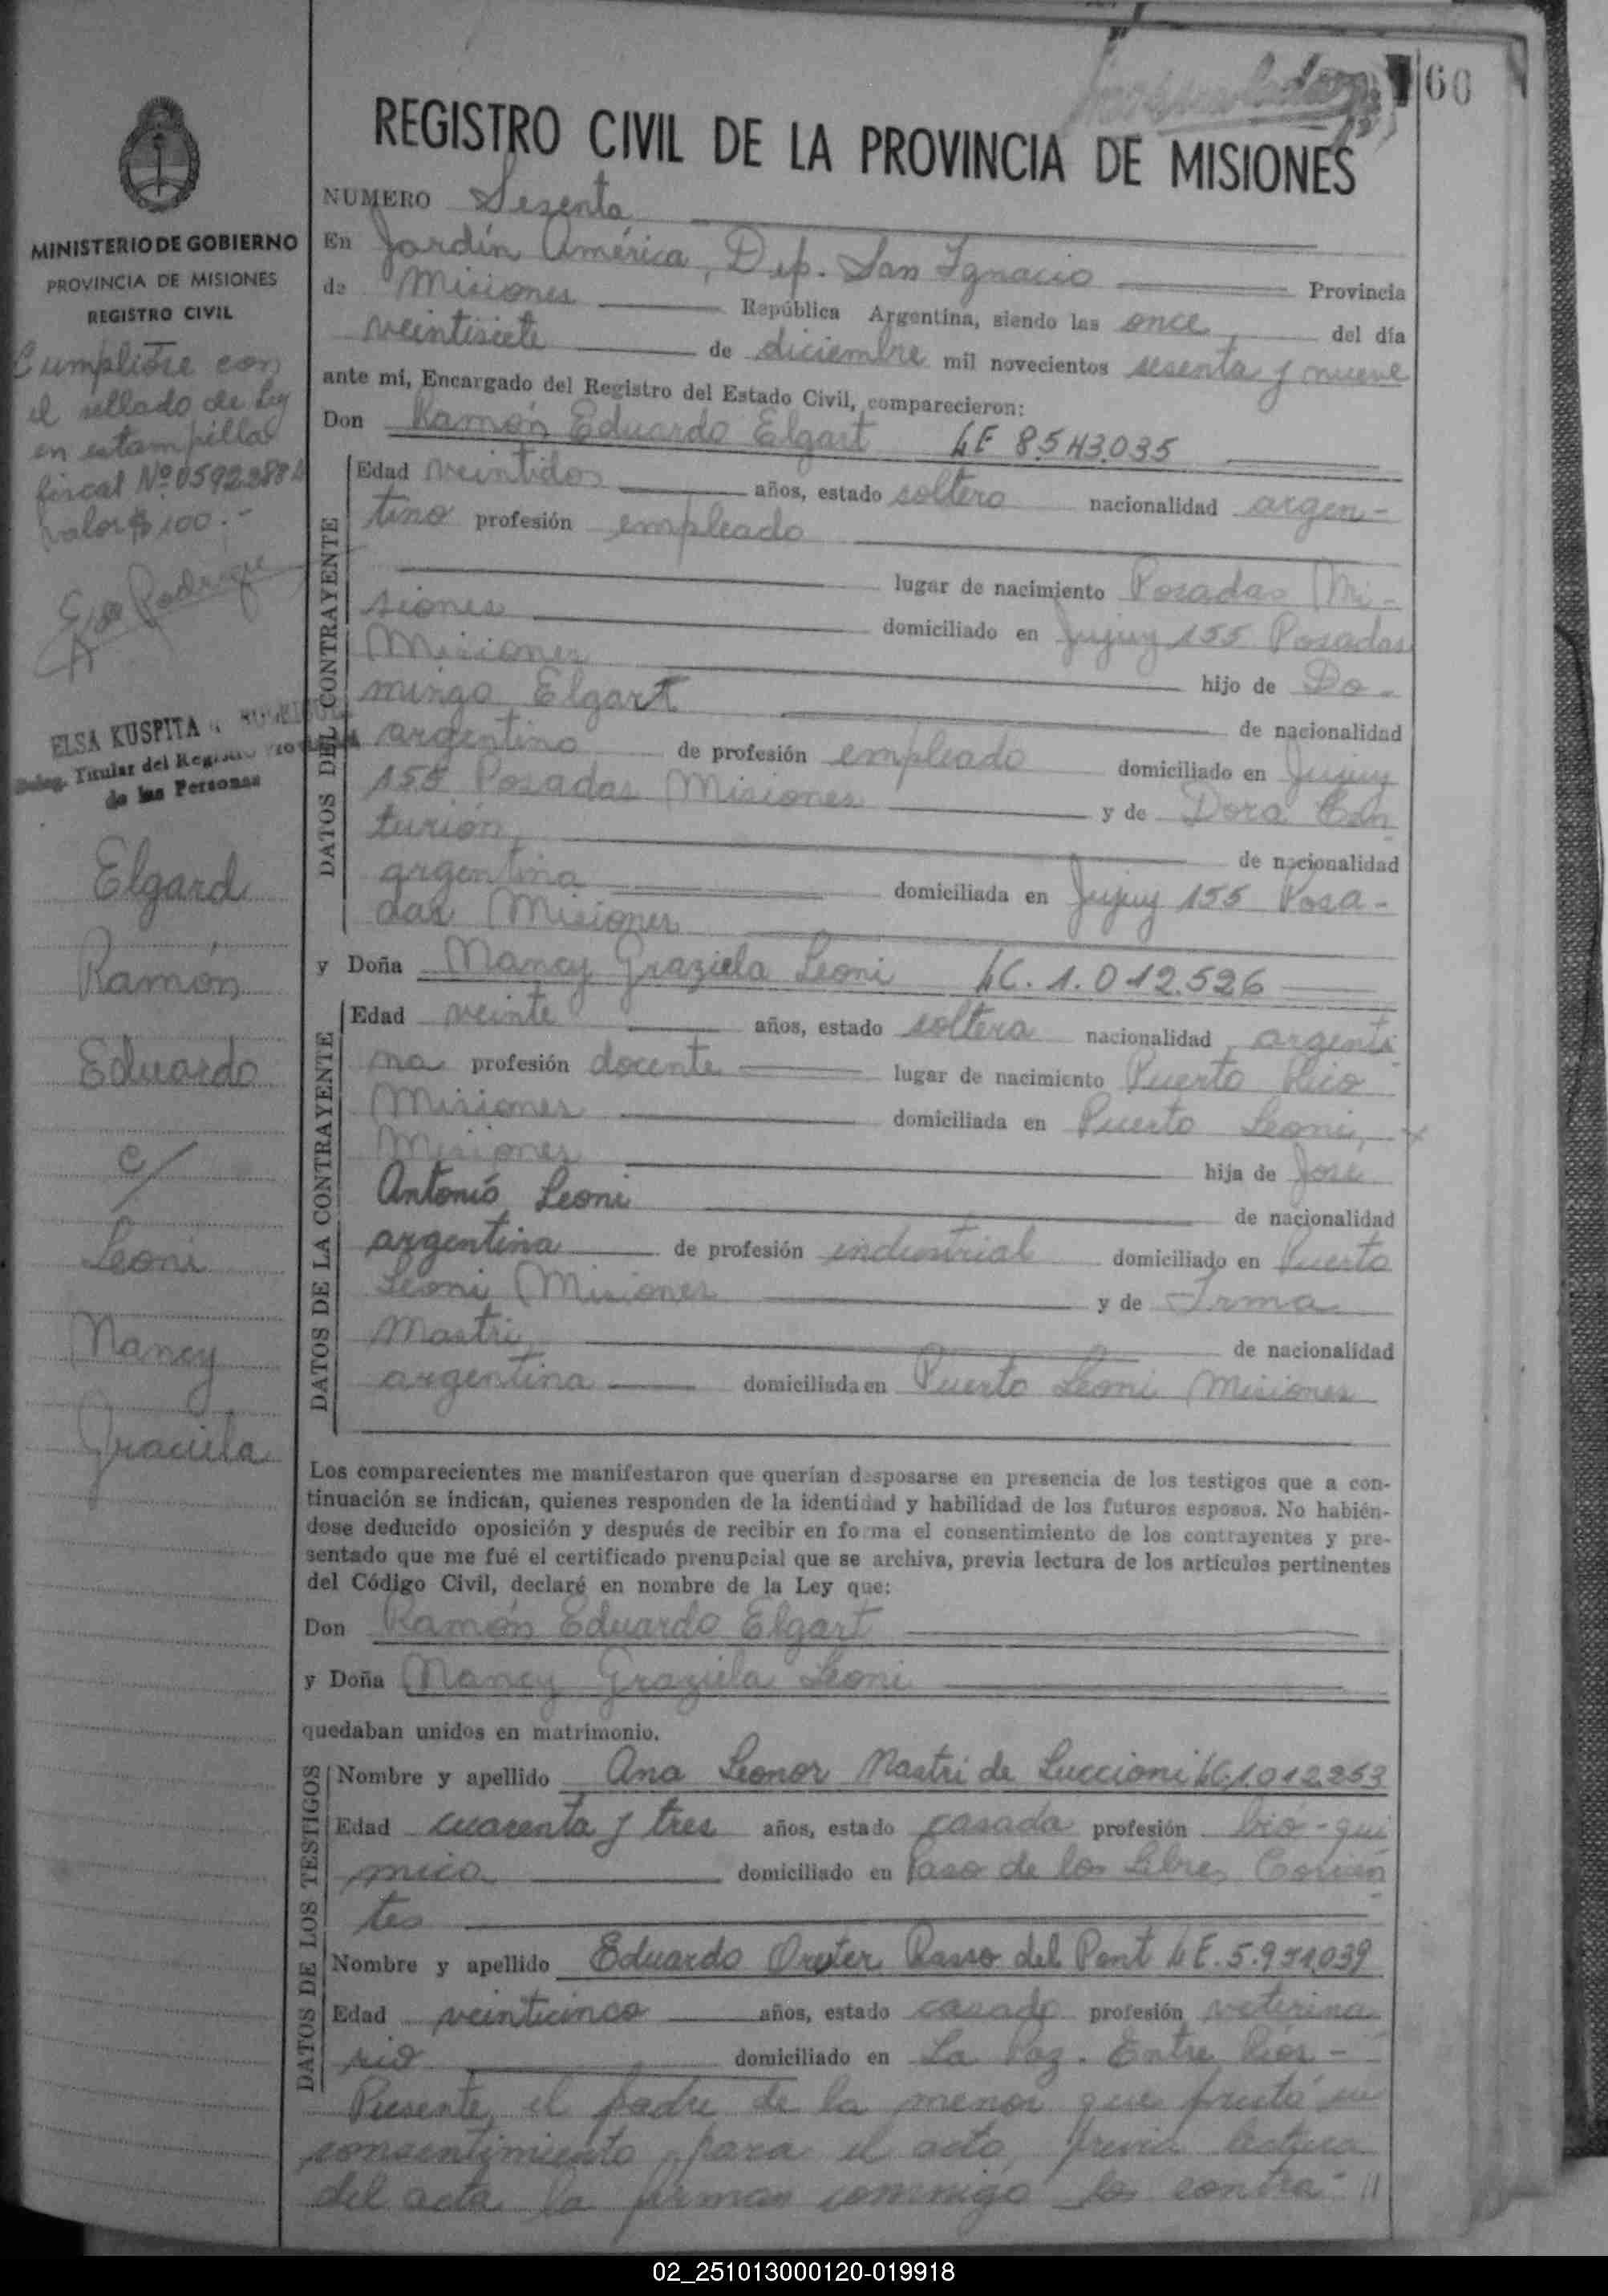 60
REGISTRO CIVIL DE LA PROVINCIA DE MISIONES
MINISTERIO DE GOBIERNO
PROVINCIA DE MISIONES
REGISTRO CIVIL
Cumplióse con
el sellado de Ley
en estampilla
fiscal Nº 0592288
valor $ 100.-
ELSA KUSPITA
Deleg. Titular del Registro
de las Personas
Elgard
Ramón
Eduardo
c/
Leoni
Nancy
Graciela
NUMERO Sesenta
En Jardín América, Dep. San Ignacio Provincia
de Misiones República Argentina, siendo las once del día
veintisiete de diciembre mil novecientos sesenta y nueve
ante mí, Encargado del Registro del Estado Civil, comparecieron:
Don Ramón Eduardo Elgart LE 8543.035
DATOS DEL CONTRAYENTE
Edad veintidos años, estado soltero nacionalidad argen-
tino profesión empleado
lugar de nacimiento Posadas Mi-
siones domiciliado en Jujuy 155 Posadas
Misiones hijo de Do-
mingo Elgart de nacionalidad
argentino de profesión empleado domiciliado en Jujuy
155 Posadas Misiones y de Dora Cen
turión, de nacionalidad
argentina domiciliada en Jujuy 155 Posa-
das Misiones
y Doña Nancy Graziela Leoni LC. 1.012.526
DATOS DE LA CONTRAYENTE
Edad veinte años, estado soltera nacionalidad argenti
na profesión docente lugar de nacimiento Puerto Rico
Misiones domiciliada en Puerto Leoni,
Misiones hija de José
Antonio Leoni de nacionalidad
argentina de profesión industrial domiciliado en Puerto
Leoni Misiones y de Irma
Mastri, de nacionalidad
argentina domiciliada en Puerto Leoni Misiones
Los comparecientes me manifestaron que querían desposarse en presencia de los testigos que a con-
tinuación se indican, quienes responden de la identidad y habilidad de los futuros esposos. No habién-
dose deducido oposición y después de recibir en forma el consentimiento de los contrayentes y pre-
sentado que me fué el certificado prenupcial que se archiva, previa lectura de los artículos pertinentes
del Código Civil, declaré en nombre de la Ley que:
Don Ramón Eduardo Elgart
y Doña Nancy Graziela Leoni
quedaban unidos en matrimonio.
DATOS DE LOS TESTIGOS
Nombre y apellido Ana Leonor Mastri de Luccioni LC 1.012.253
Edad cuarenta y tres años, estado casada profesión bio-quí
mica domiciliado en Paso de los Libres Corrien
tes
Nombre y apellido Eduardo Passo del Pont LE. 5.931.039
Edad veinticinco años, estado casado profesión veterina
rio domiciliado en La Paz. Entre Ríos-
Presente, el padre de la menor que prestó su
consentimiento para el acto, previa lectura
del acta la firman conmigo los contra- //
02_251013000120-019918